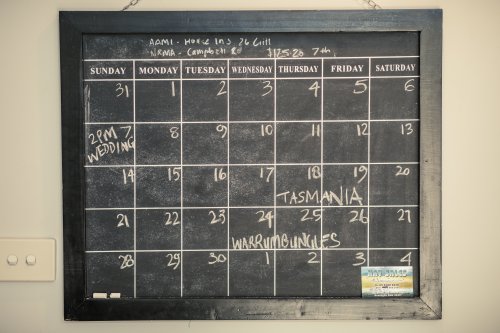 AAMI - House Ins 26 Gill
NRMA - Campbell Rd $125.20 7th
SUNDAY MONDAY TUESDAY WEDNESDAY THURSDAY FRIDAY SATURDAY
31 1 2 3 4 5 6
2PM 7 8 9 10 11 12 13
WEDDING
14 15 16 17 18 19 20
TASMANIA
21 22 23 24 25 26 27
WARRUMBUNGLES
28 29 30 1 2 3 4